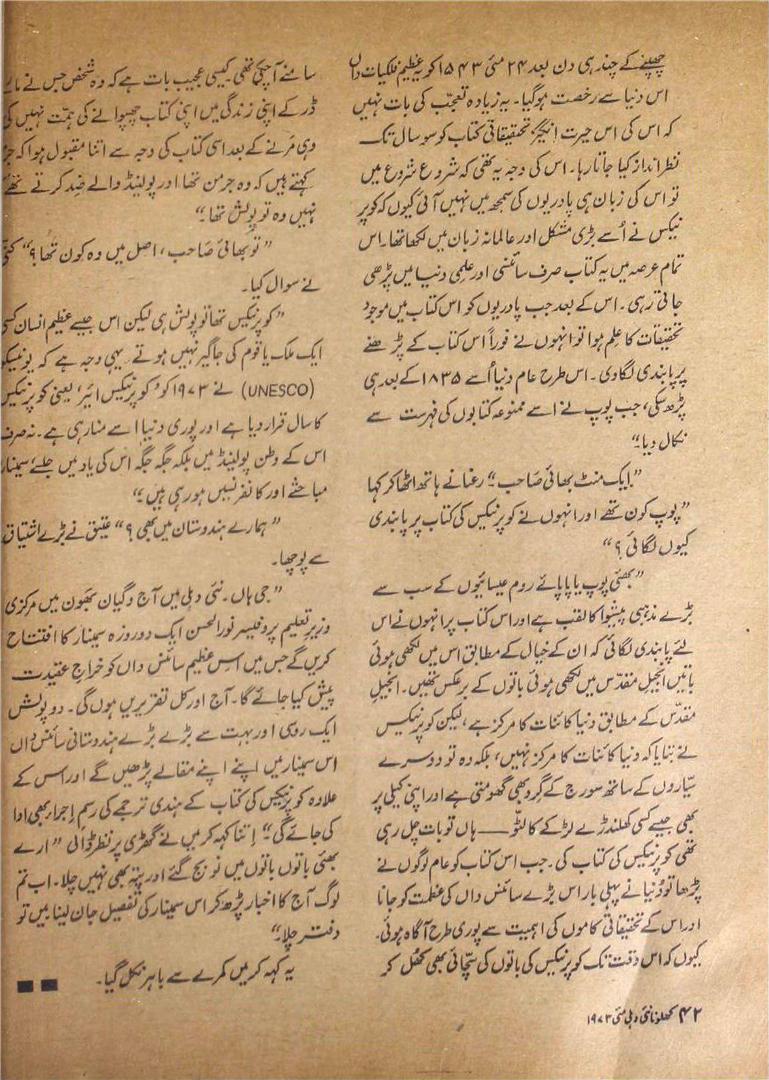 چھپنے کے چند ہی دن بعد ۲۴ مئی ۱۵۴۳ کو یہ عظیم فلکیات داں
اس دنیا سے رخصت ہوگیا۔ یہ زیادہ تعجّب کی بات نہیں
کہ اس کی اس حیرت انگیز تحقیقاتی کتاب کو سو سال تک
نظر انداز کیا جاتا رہا۔ اس کی وجہ یہ تھی کہ شروع شروع میں
تو اس کی زبان ہی پادریوں کی سمجھ میں نہیں آئی کیوں کہ کوپر
نیکس نے اُسے بڑی مشکل اور عالمانہ زبان میں لکھا تھا۔ اس
تمام عرصہ میں یہ کتاب صرف سائنسی اور علمی دنیا میں پڑھی
جاتی رہی۔ اس کے بعد جب پادریوں کو اس کتاب میں موجود
تحقیقات کا علم ہوا تو انہوں نے فوراً اس کتاب کے پڑھنے
پر پابندی لگا دی۔ اس طرح عام دنیا اُسے ۱۸۳۵ کے بعد ہی
پڑھ سکی، جب پوپ نے اسے ممنوعہ کتابوں کی فہرست سے
نکال دیا۔“
”ایک منٹ بھائی صاحب۔“ رعنا نے ہاتھ اٹھا کر کہا
”پوپ کون تھے اور انہوں نے کوپرنیکس کی کتاب پر پابندی
کیوں لگائی؟“
”بھئی پوپ یا پاپائے روم عیسائیوں کے سب سے
بڑے مذہبی پیشوا کا لقب ہے اور اس کتاب پر انہوں نے اس
لئے پابندی لگائی کہ ان کے خیال کے مطابق اس میں لکھی ہوئی
باتیں انجیل مقدّس میں لکھی ہوئی باتوں کے برعکس تھیں۔ انجیلِ
مقدّس کے مطابق دنیا کائنات کا مرکز ہے، لیکن کوپرنیکس
نے بتایا کہ دنیا کائنات کا مرکز نہیں، بلکہ وہ تو دوسرے
سیّاروں کے ساتھ سورج کے گرد بھی گھومتی ہے اور اپنی کیلی پر
بھی جیسے کسی کھلنڈرے لڑکے کا لٹّو ــــ ہاں تو بات چل رہی
تھی کوپرنیکس کی کتاب کی۔ جب اس کتاب کو عام لوگوں نے
پڑھا تو دُنیا نے پہلی بار اس بڑے سائنس داں کی عظمت کو جانا
اور اس کے تحقیقاتی کاموں کی اہمیت سے پوری طرح آگاہ ہوئی۔
کیوں کہ اس وقت تک کوپرنیکس کی باتوں کی سچّائی بھی کھُل کر
سامنے آچکی تھی۔ کیسی عجیب بات ہے کہ وہ شخص جس نے مارے
ڈر کے اپنی زندگی میں اپنی کتاب چھپوانے کی ہمّت نہیں کی
وہی مرنے کے بعد اسی کتاب کی وجہ سے اتنا مقبول ہوا کہ
کہتے ہیں کہ وہ جرمن تھا اور پولینڈ والے ضِد کرتے تھے
نہیں وہ تو پولش تھا۔“
”تو بھائی صاحب، اصل میں وہ کون تھا؟“
نے سوال کیا۔
”کوپرنیکس تھا تو پولش ہی لیکن اس جیسے عظیم انسان کسی
ایک ملک یا قوم کی جاگیر نہیں ہوتے۔ یہی وجہ ہے کہ یونیسکو
(UNESCO) نے ۱۹۷۳ کو ’کوپرنیکس ائیر‘ یعنی کوپرنیکس
کا سال قرار دیا ہے اور پوری دنیا اسے منا رہی ہے۔ نہ صرف
اس کے وطن پولینڈ میں بلکہ جگہ جگہ اس کی یاد میں جلسے، سمینار
مباحثے اور کانفرنسیں ہو رہی ہیں۔“
”ہمارے ہندوستان میں بھی؟“ عتیق نے بڑے اشتیاق
سے پوچھا۔
”جی ہاں۔ نئی دہلی میں آج وگیان بھَون میں مرکزی
وزیرِ تعلیم پروفیسر نور الحسن ایک دو روزہ سمینار کا افتتاح
کریں گے جس میں اس عظیم سائنس داں کو خراجِ عقیدت
پیش کیا جائے گا۔ آج اور کل تقریریں ہوں گی۔ دو پولش
ایک روسی اور بہت سے بڑے بڑے ہندوستانی سائنس داں
اس سمینار میں اپنے اپنے مقالے پڑھیں گے اور اس کے
علاوہ کوپرنیکس کی کتاب کے ہندی ترجمے کی رسمِ اجرا بھی ادا
کی جائے گی۔“ اِتنا کہہ کر میں نے گھڑی پر نظر ڈالی ”ارے
بھئی باتوں باتوں میں نو بج گئے اور پتہ بھی نہیں چلا۔ اب تم
لوگ آج کا اخبار پڑھ کر اس سمینار کی تفصیل جان لینا میں تو
دفتر چلا۔“
یہ کہہ کر میں کمرے سے باہر نکل گیا۔
۴۲ کھلونا نئی دہلی مئی ۱۹۷۳